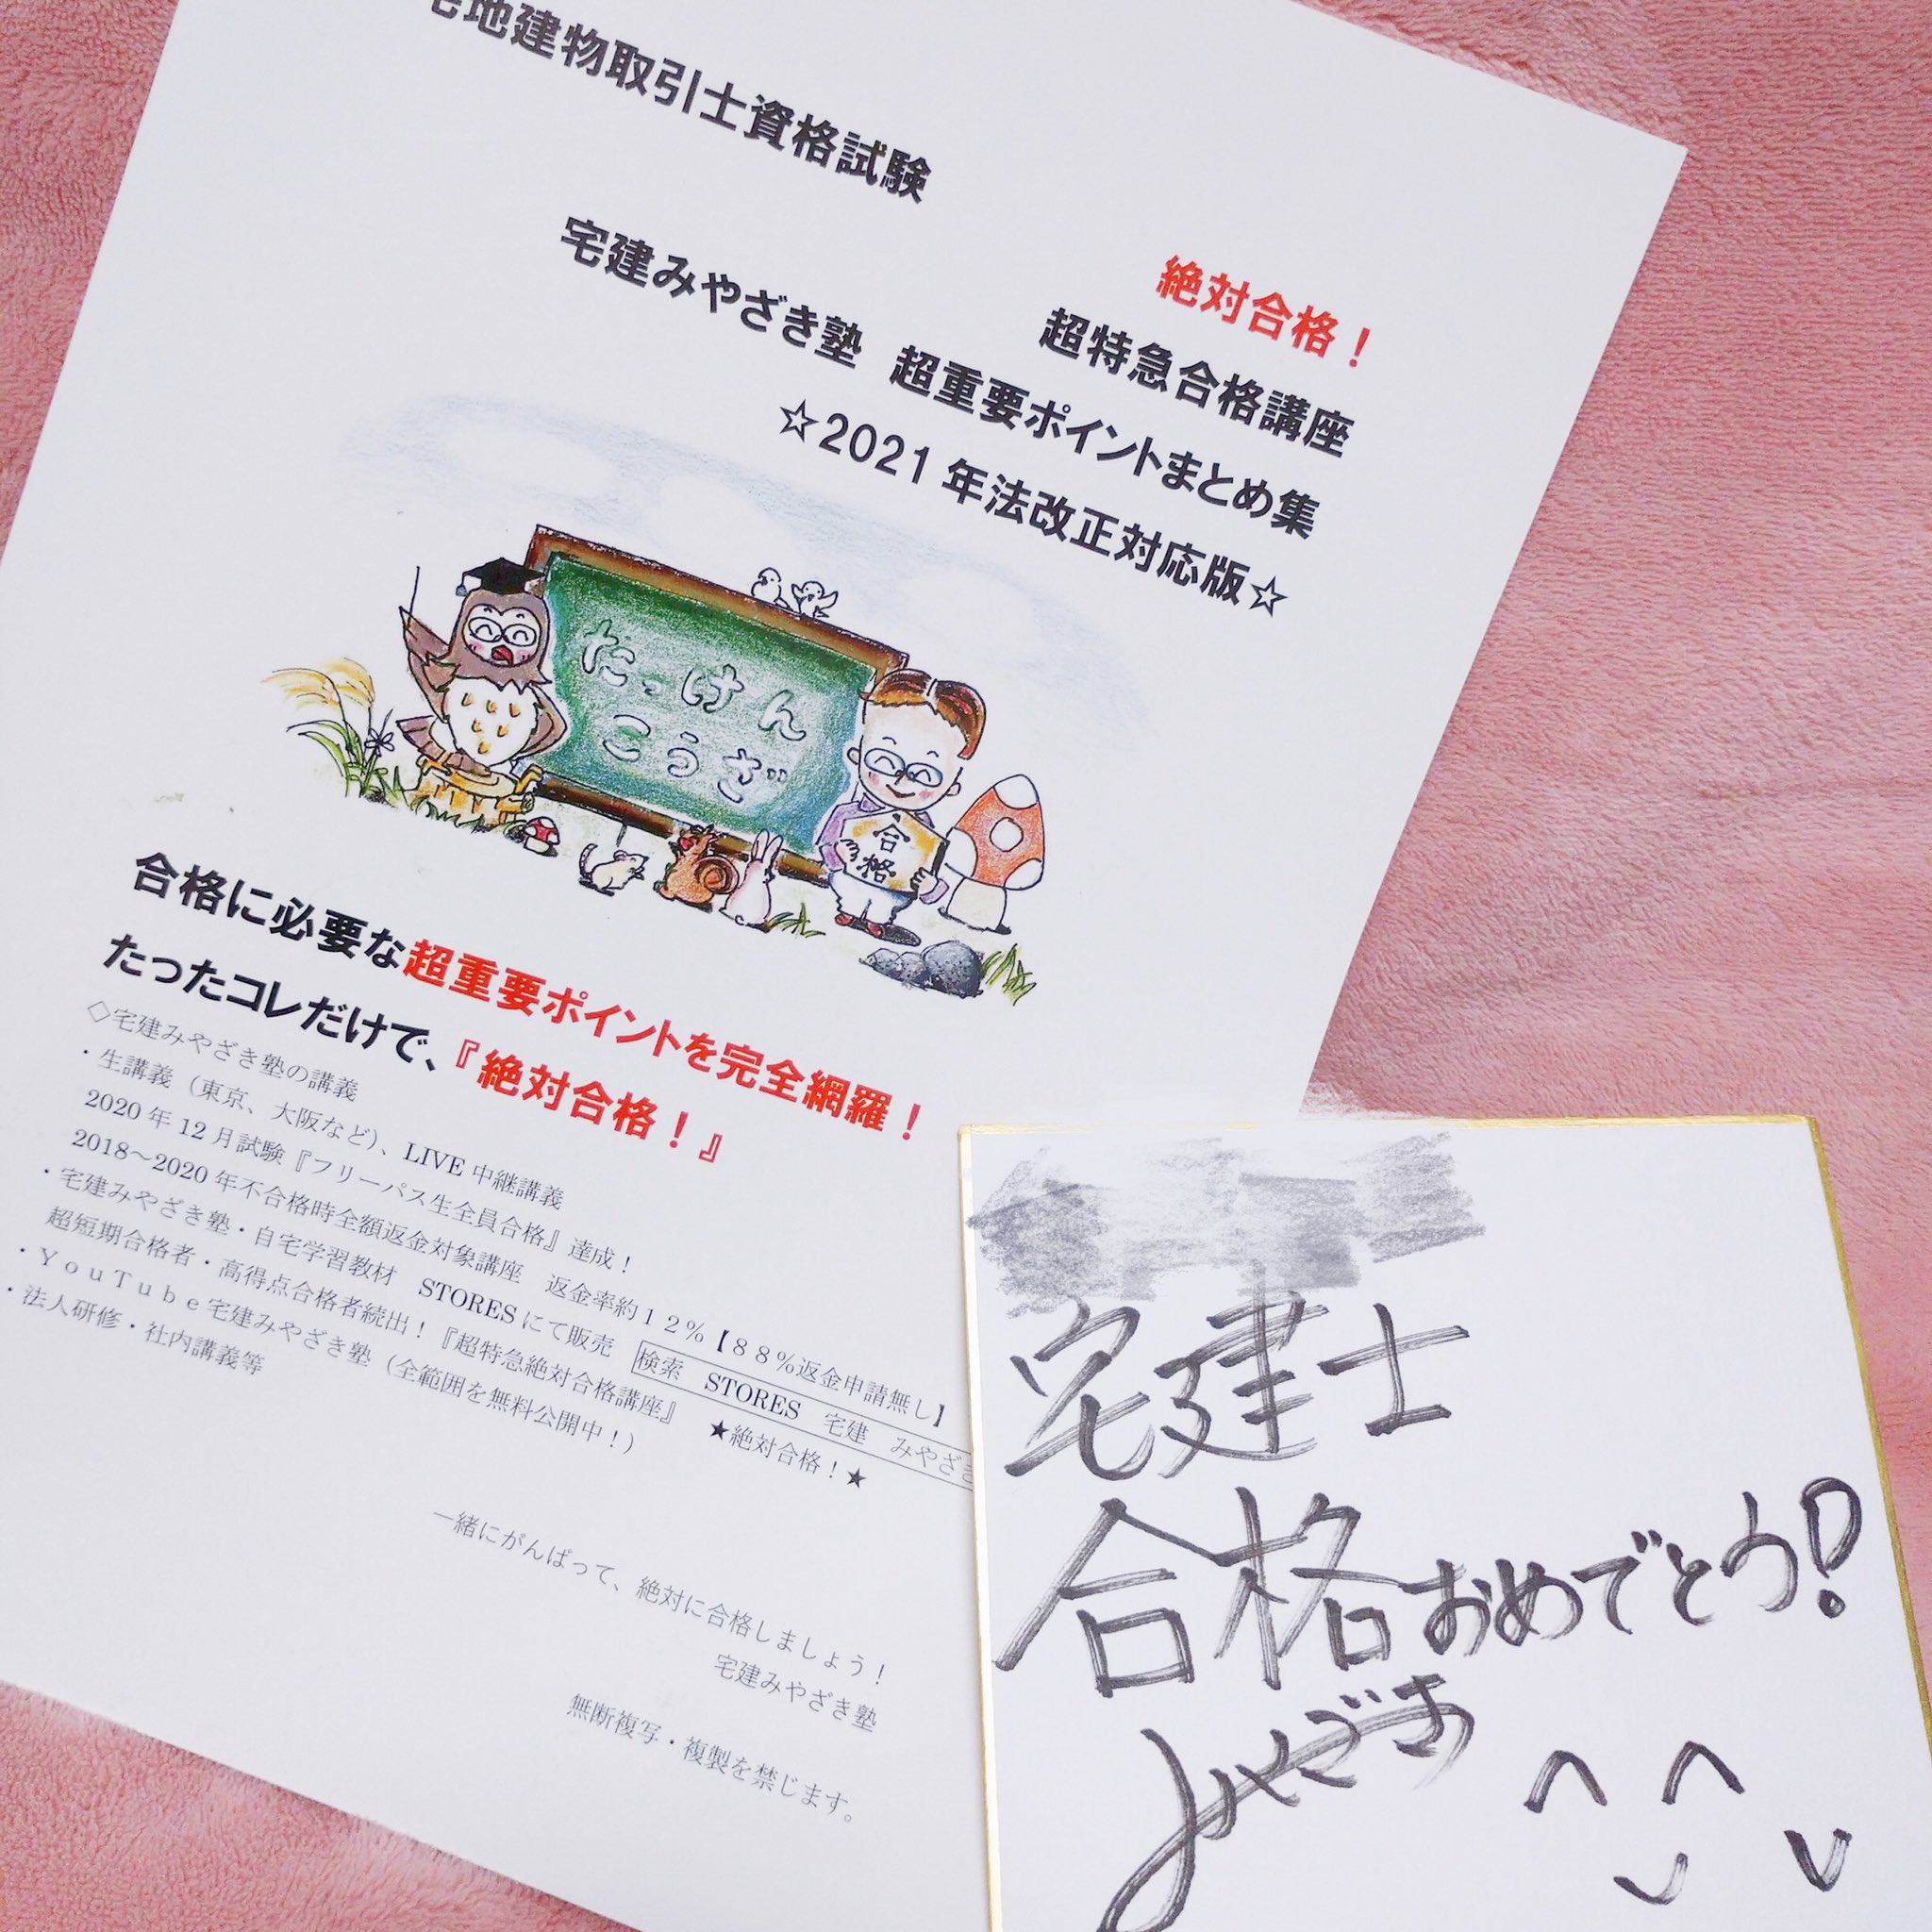 宅地建物取引士資格試験
絶対合格！
超特急合格講座
宅建みやざき塾 超重要ポイントまとめ集
☆2021年法改正対応版☆
たっけん
こうざ
合格
合格に必要な超重要ポイントを完全網羅！
たったコレだけで、『絶対合格！』
◇宅建みやざき塾の講義
・生講義（東京、大阪など）、LIVE中継講義
2020年12月試験『フリーパス生全員合格』達成！
2018～2020年不合格時全額返金対象講座 返金率約１２％【８８％返金申請無し】
・宅建みやざき塾・自宅学習教材 STORESにて販売 検索 STORES 宅建 みやざき
超短期合格者・高得点合格者続出！『超特急絶対合格講座』 ★絶対合格！★
・ＹｏｕＴｕｂｅ宅建みやざき塾（全範囲を無料公開中！）
・法人研修・社内講義等
一緒にがんばって、絶対に合格しましょう！
宅建みやざき塾
無断複写・複製を禁じます。
宅建士
合格おめでとう!
みやざき